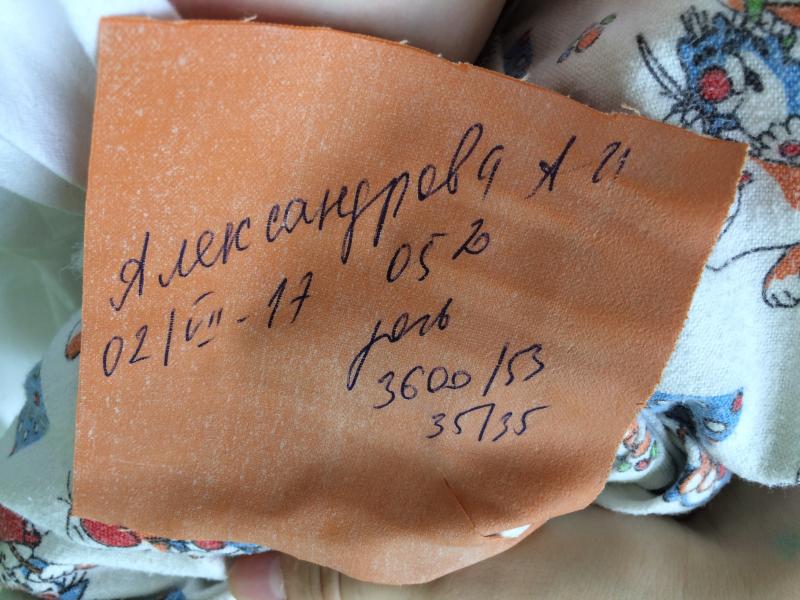 Александрова А И
02/VII-17 05 20
дочь
3600/53
35/35